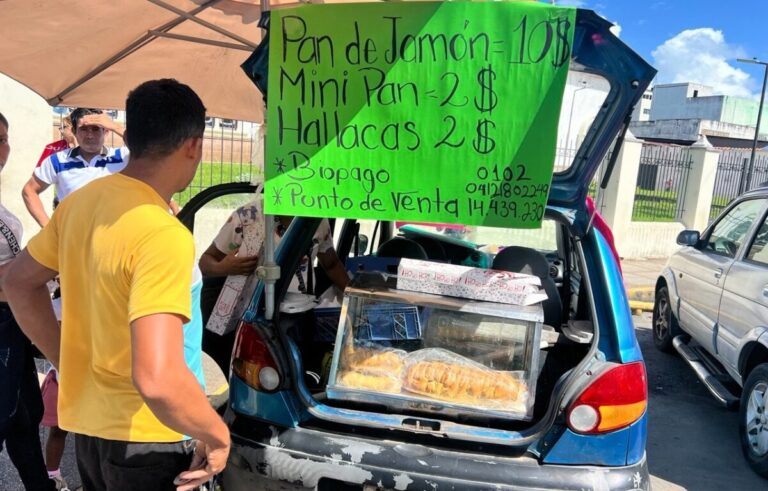 Pan de Jamón = 10$
Mini Pan = 2 $
Hallacas 2 $
* Biopago 0102
04121802249
* Punto de venta 14.439.230